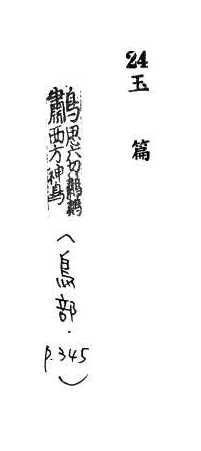 24玉篇
鷫思六切鷫鷞
西方神鳥
(鳥部.p.345)